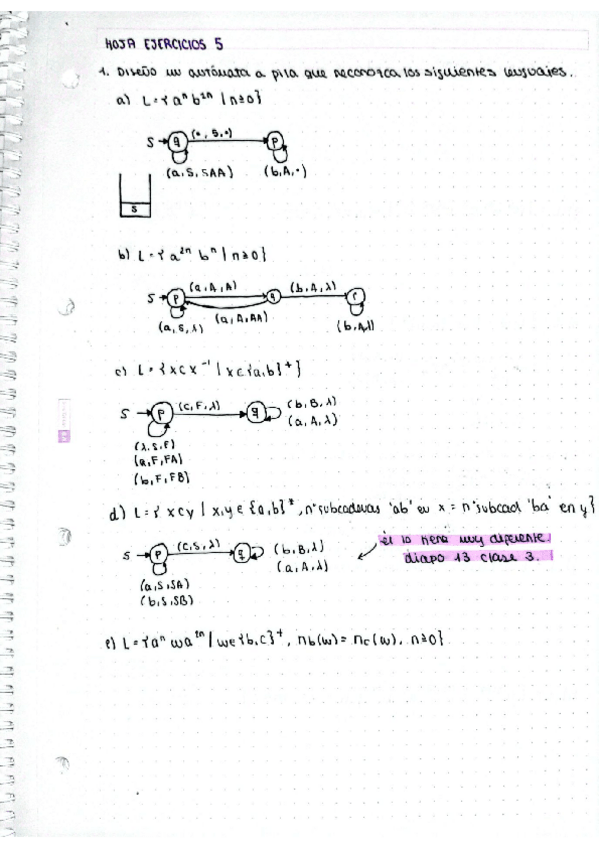 HOJA EJERCICIOS 5
1. Diseño un autómata a pila que reconozca los siguientes lenguajes.
a) L={aⁿ b²ⁿ | n≥0}
S → q (•, S, •) p
(a, S, SAA) (b, A, •)
S
b) L={a²ⁿ bⁿ | n≥0}
(a, A, A) (b, A, λ)
S → p q r
(a, S, λ) (a, A, AA) (b, A, λ)
c) L={xcx⁻¹ | x∈{a,b}⁺}
S → p (c, F, λ) q (b, B, λ)
(a, A, λ)
(λ, S, F)
(a, F, FA)
(b, F, FB)
d) L={xcy | x,y∈{a,b}*, nºsubcadenas 'ab' en x = nºsubcad 'ba' en y}
S → p (c, S, λ) q (b, B, λ)
(a, A, λ)
(a, S, SA)
(b, S, SB)
él lo tiene muy diferente,
diapo 13 clase 3.
e) L={aⁿ wa²ⁿ | w∈{b,c}⁺, nb(w)=nc(w), n≥0}